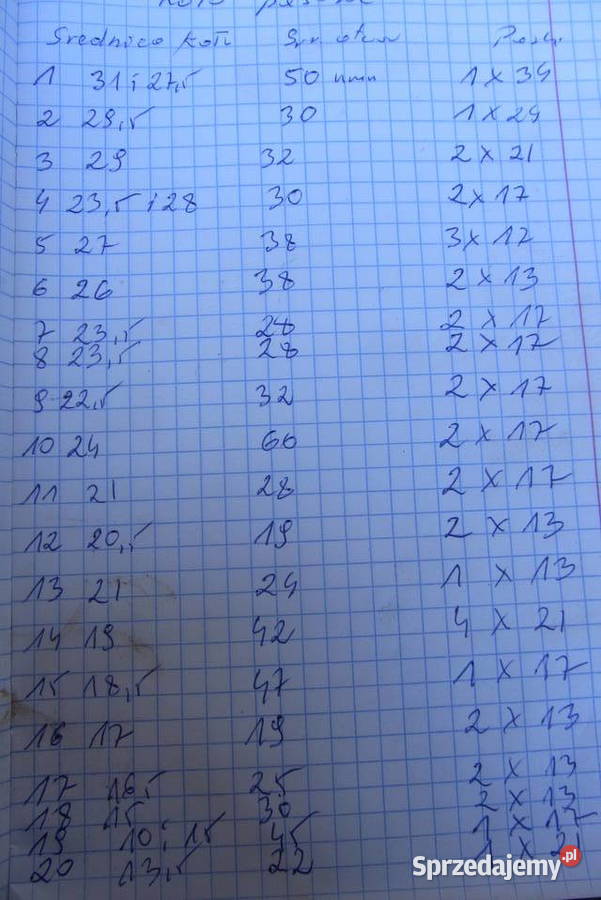 Koło pasowe
Srednica Koła Śr. otwor Paski
1 31 i 27,5 50 mm 1 x 34
2 29,5 30 1 x 24
3 29 32 2 x 21
4 23,5 i 28 30 2 x 17
5 27 38 3 x 17
6 26 38 2 x 13
7 23,5 28 2 x 17
8 23,5 28 2 x 17
9 22,5 32 2 x 17
10 24 60 2 x 17
11 21 28 2 x 17
12 20,5 19 2 x 13
13 21 24 1 x 13
14 19 42 4 x 21
15 18,5 47 1 x 17
16 17 19 2 x 13
17 16,5 25 2 x 13
18 15 30 2 x 13
19 10 i 15 45 1 x 17
20 13,5 22 1 x 21
Sprzedajemy.pl